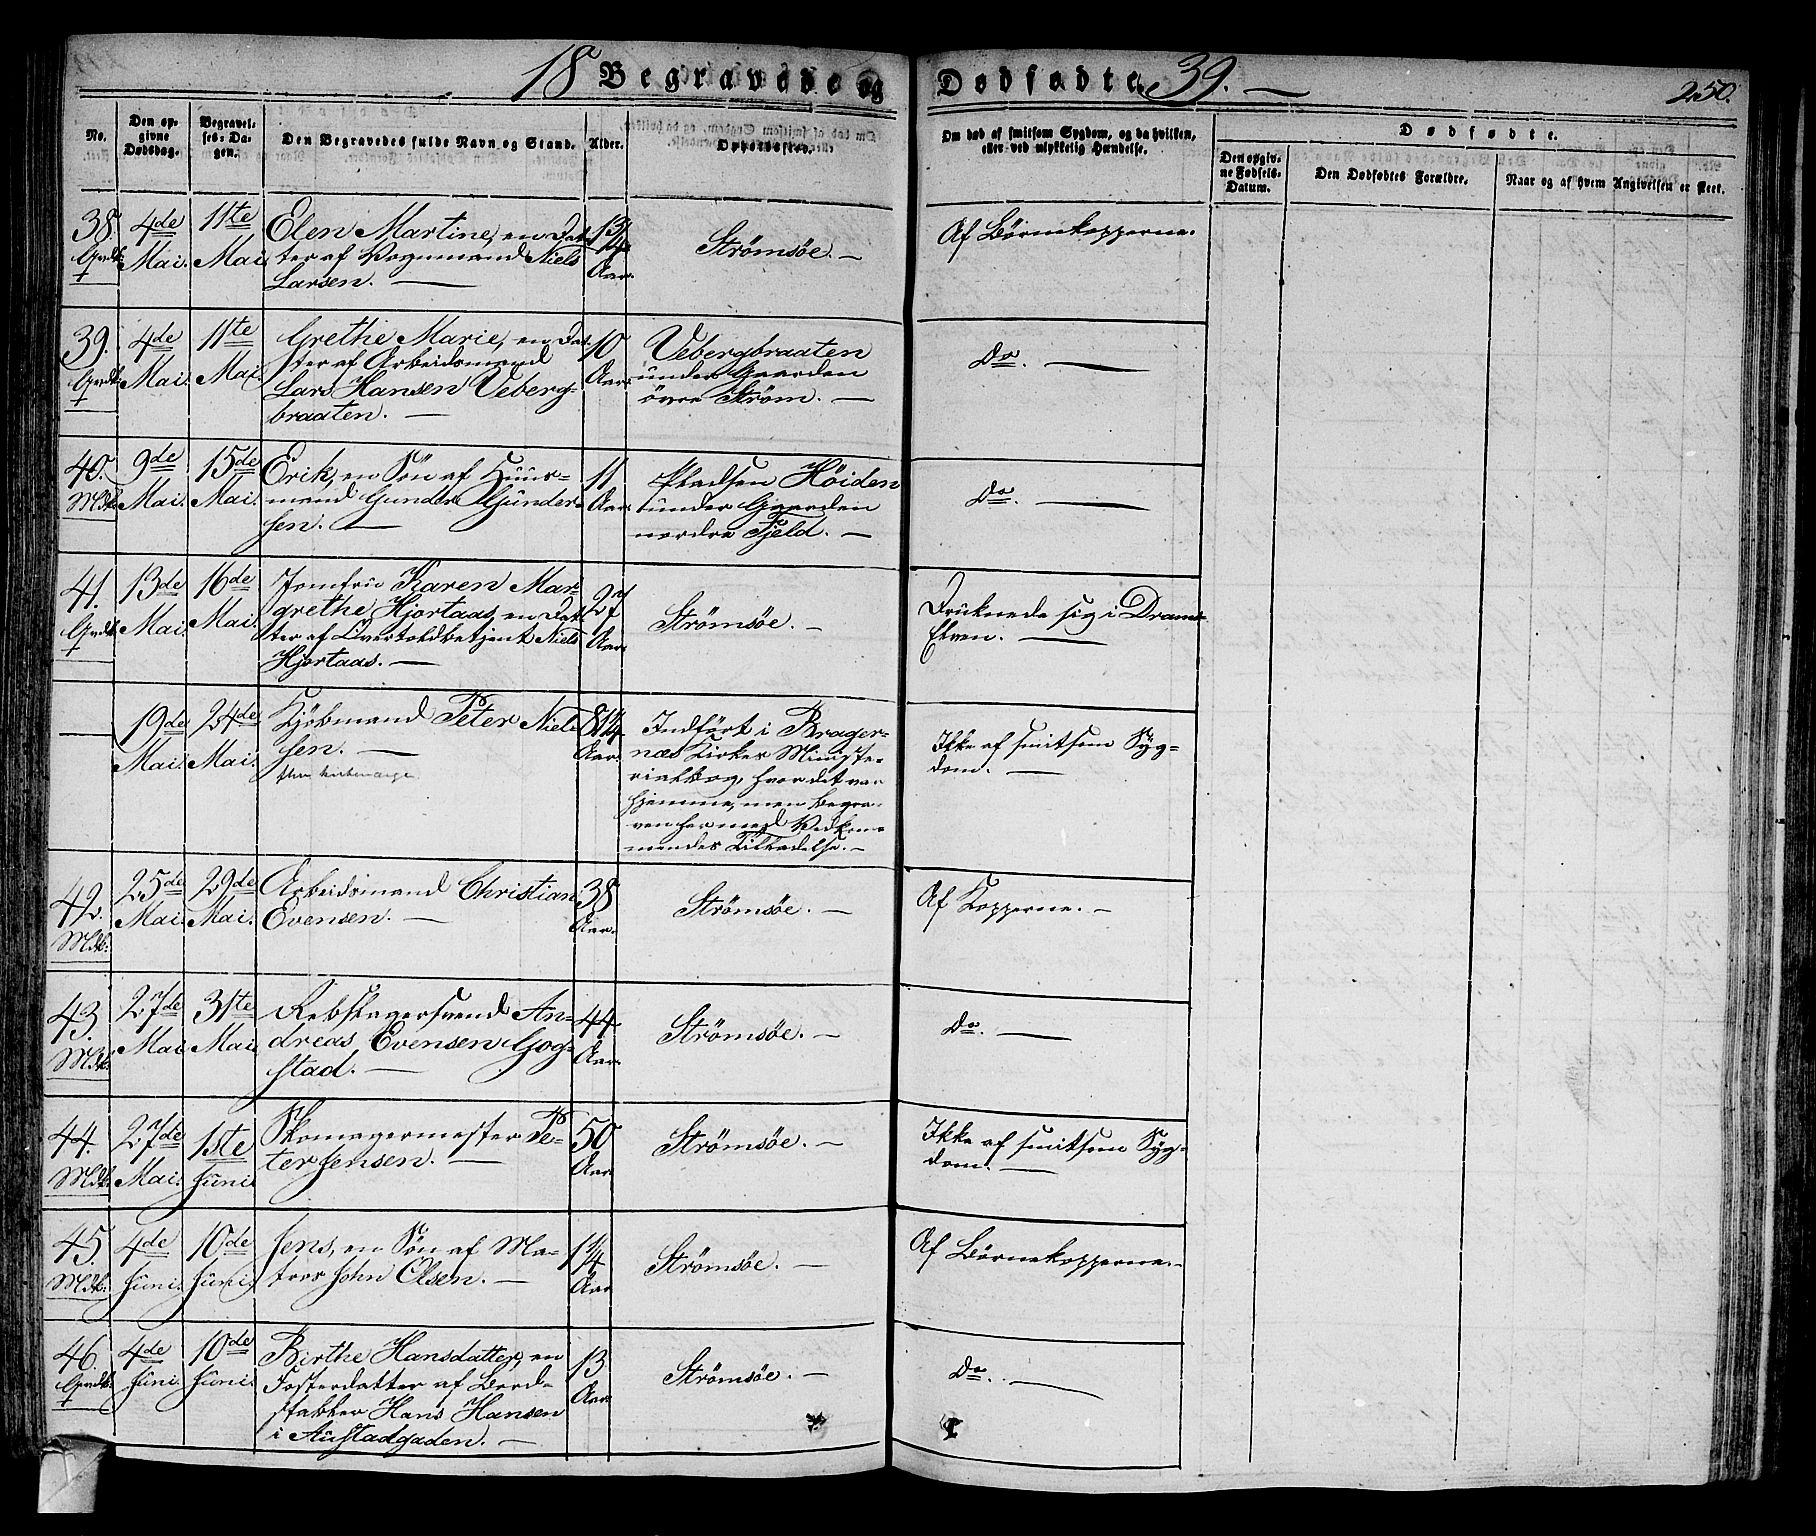 18 Begravede og Dødfødte. 39. — 250.
No.
Den opgivne Dødsdag.
Begravelses-Dagen.
Den Begravedes fulde Navn og Stand.
Alder.
Opholdssted.
Om død af smitsom Sygdom, og da hvilken, eller ved ulykkelig Hændelse.
Dødfødte.
Den opgivne Fødsels-Datum.
Den Dødfødtes Forældre.
Naar og af hvem Angivelsen er skeet.
38. Qvdk. 4de Mai. 11te Mai
Elen Martine, en Dat-
ter af Vognmand Niels
Larsen. —
13/4 Aar.
Strømsøe. —
Af Børnekopperne.
39. Qvdk. 4de Mai. 11te Mai.
Grethe Marie, en Dat-
ter af Arbeidsmand
Lars Hansen Veberg-
braaten. —
10 Aar.
Vebergbraaten
under Gaarden
övre Ström. —
Do. —
40. Mdk. 9de Mai. 15de Mai.
Erik, en Søn af Huus-
mand Gunder Gunder-
sen. —
11 Aar.
Pladsen Höiden
under Gaarden
nordre Fjeld. —
Do. —
41. Qvdk. 13de Mai. 16de Mai.
Jomfru Karen Mar-
grethe Hjortaas, en Dat-
ter af Overtoldbetjent Niels
Hjortaas. —
27 Aar.
Strømsøe. —
Druknede sig i Drams-
Elven. —
19de Mai. 24de Mai.
Kjöbmand Peter Niel-
sen. —
81 1/4 Aar.
Indført i Brager-
næs Kirkes Ministe-
rialbog, hvor det var
hjemme, men begra-
ven her med Vedkom-
mendes Tilladelse. —
Ikke af smitsom Syg-
dom. —
42. Mdk. 25de Mai. 29de Mai.
Arbeidsmand Christian
Evensen. —
38 Aar.
Strømsøe. —
Af Kopperne. —
43. Mdk. 27de Mai 31te Mai
Rebslagersvend An-
dreas Evensen Gog-
stad. —
44 Aar.
Strømsøe. —
Do. —
44. Mdk. 27de Mai. 1ste Juni.
Skomagermester Pe-
ter Jensen. —
50 Aar.
Strømsøe. —
Ikke af smitsom Syg-
dom. —
45. Mdk. 4de Juni. 10de Juni.
Jens, en Søn af Ma-
tros John Olsen. —
1 1/4 Aar
Strømsøe. —
Af Børnekopperne. —
46. Qvdk. 4de Juni. 10de Juni.
Birthe Hansdatter, en
Fosterdatter af Bord-
stabler Hans Hansen
i Austadgaden. —
13 Aar.
Strømsøe. —
Do. —